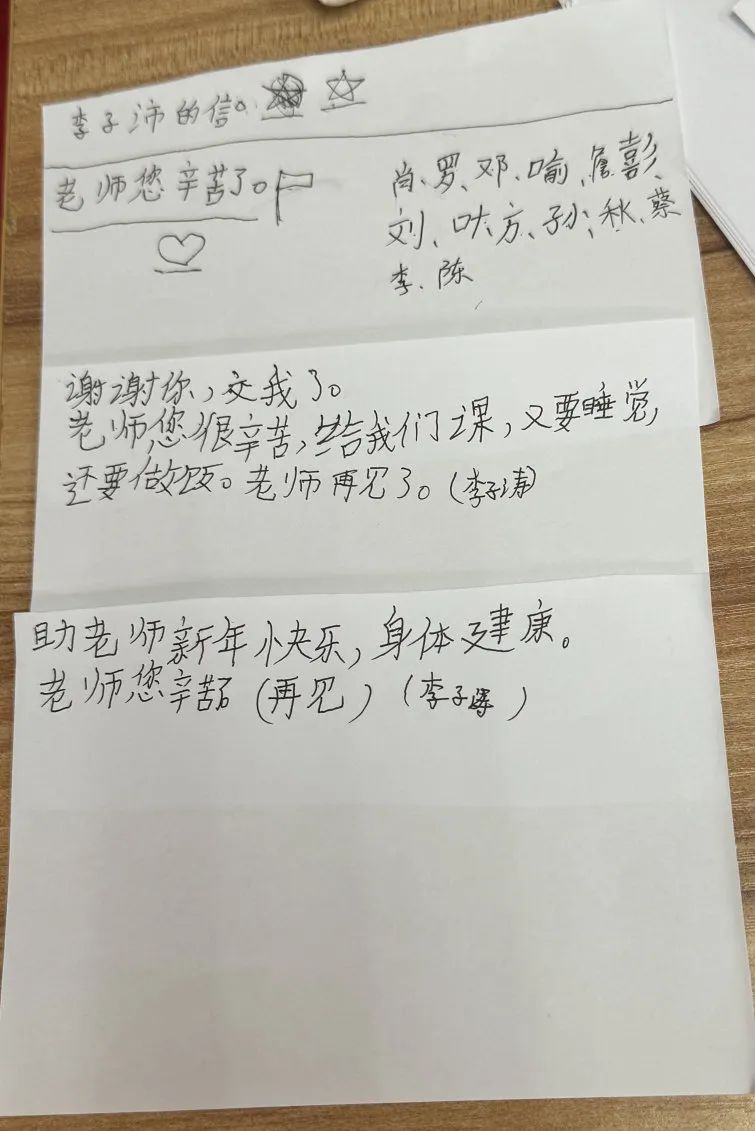 李子沛的信。
老师您辛苦了。
肖、罗、邓、喻、詹、彭、
刘、叶、方、孙、秋、蔡
李、陈
谢谢你,交我了。
老师您很辛苦,给我们上课,又要睡觉,
还要做饭。老师再见了。(李子涛)
助老师新年快乐,身体建康。
老师您辛苦了(再见)(李子)